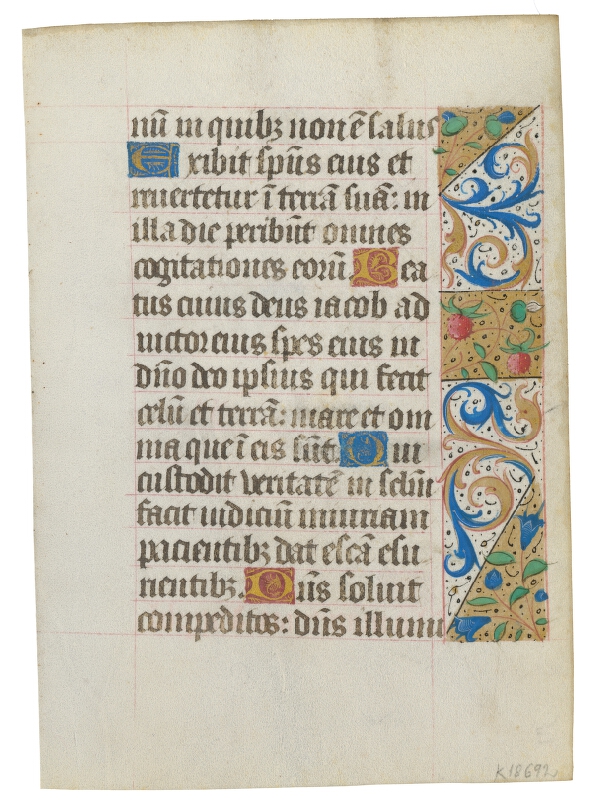 nū in quibꝫ non ē salus
Exibit spūs eius et
reuertetur ī terrā suā: in
illa die peribūt omnes
cogitationes eorū. Bea
tus cuius deus iacob ad
iutor eius spes eius in
dño deo ipsius qui fecit
celū et terrā: mare et om
nia que ī eis sūt. Qui
custodit veritatē in sclm̄
facit iudiciū iniuriam
pacientibꝫ dat escā esu
rientibꝫ. Dn̄s soluit
compeditos: dn̄s illumi
K18692